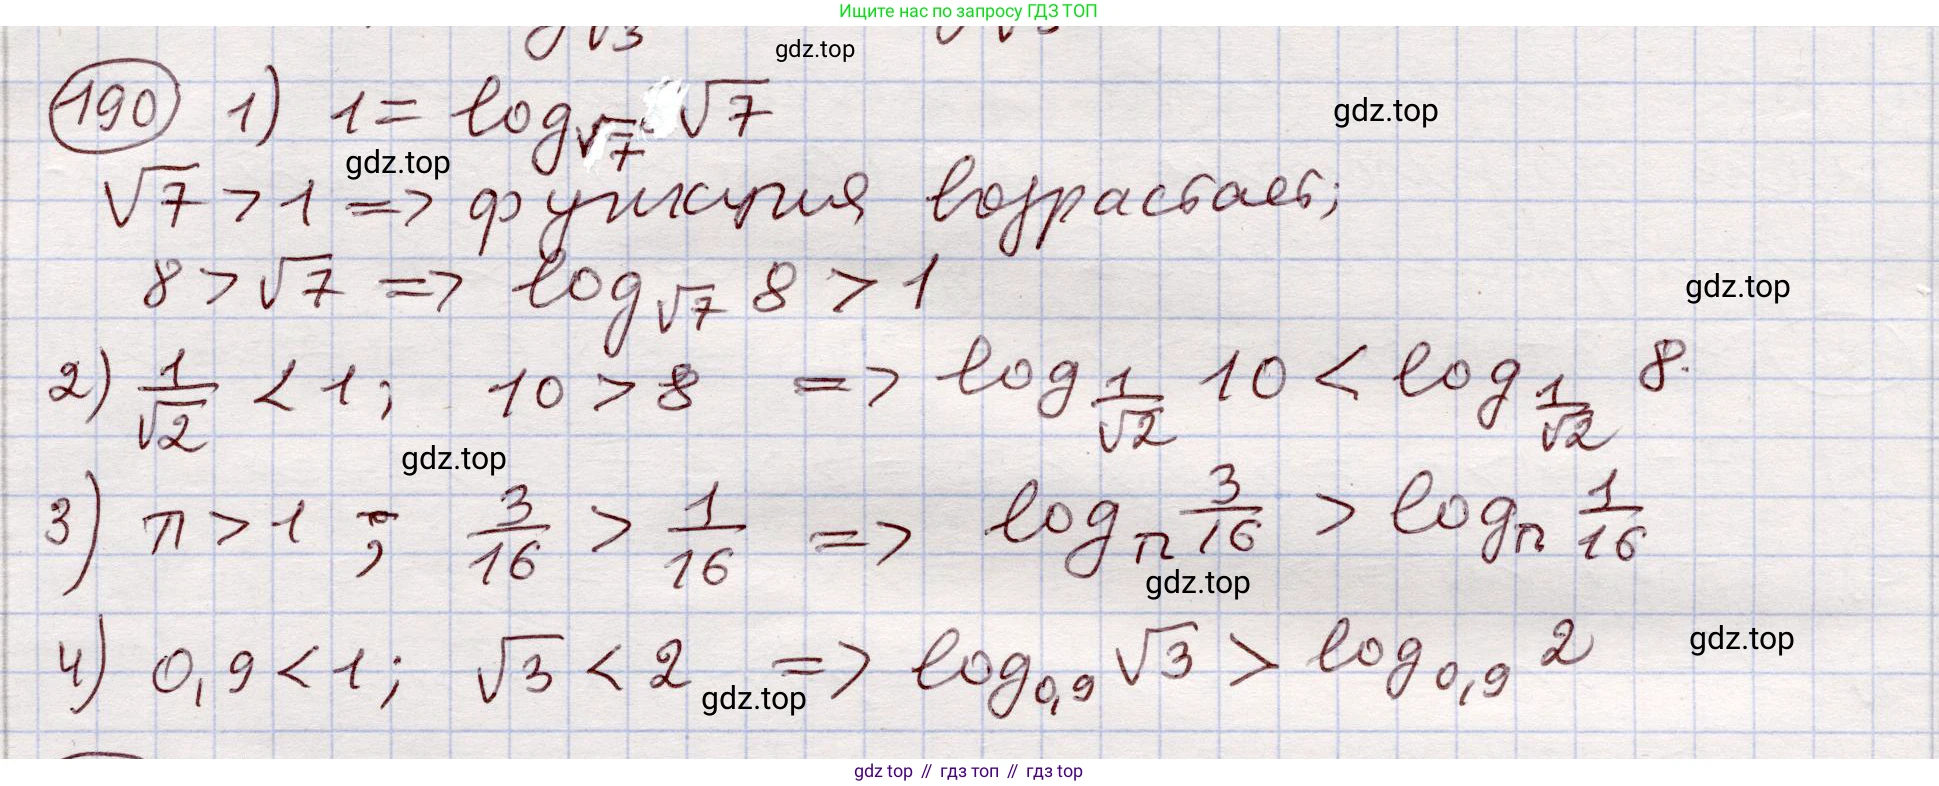 Ищите нас по запросу ГДЗ ТОП
gdz.top
190 1) 1 = log_√7 √7
gdz.top
gdz.top
√7 > 1 => функция возрастает;
8 > √7 => log_√7 8 > 1
gdz.top
2) 1/√2 < 1; 10 > 8 => log_1/√2 10 < log_1/√2 8.
gdz.top
3) π > 1; 3/16 > 1/16 => log_π 3/16 > log_π 1/16
gdz.top
4) 0,9 < 1; √3 < 2 => log_0,9 √3 > log_0,9 2
gdz.top
gdz.top
gdz top // гдз топ // гдз top